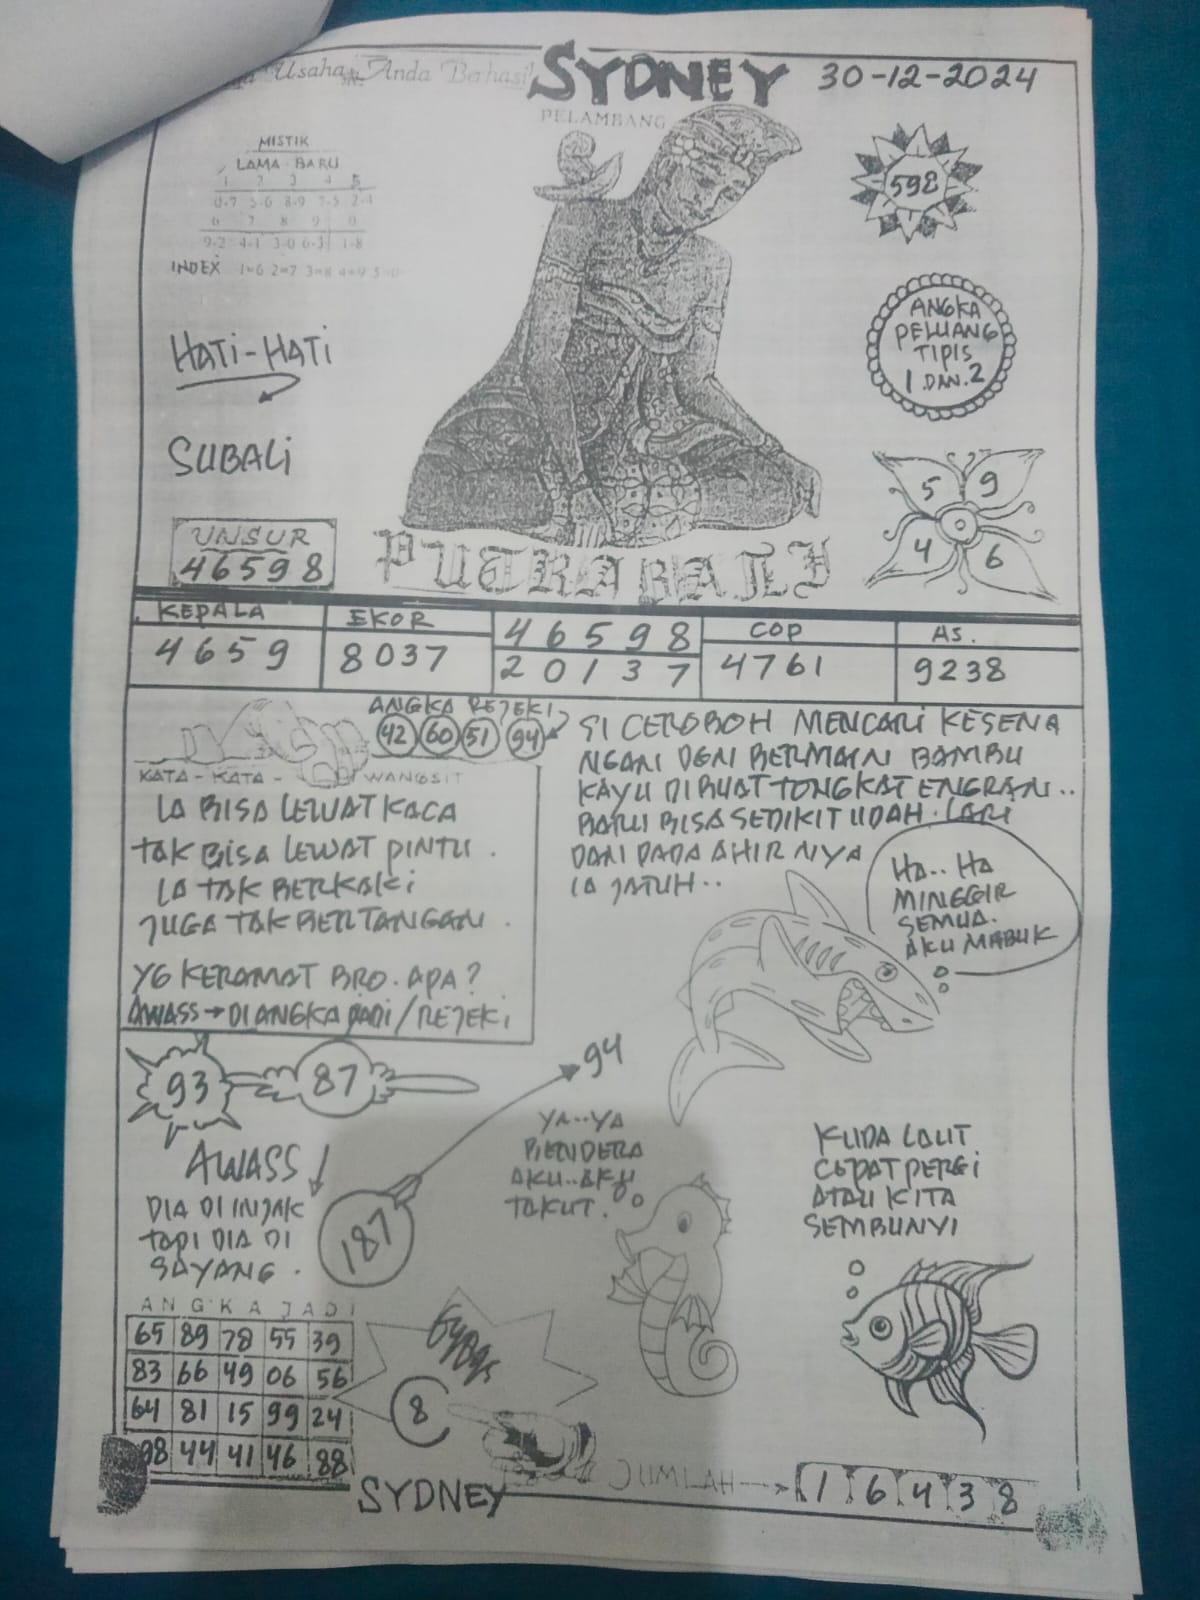 Usaha Anda Berhasil
SYDNEY 30-12-2024
PELAMBANG
MISTIK
LAMA - BARU
1 2 3 4 5
0-7 5-6 8-9 7-5 2-4
6 7 8 9 0
9-2 4-1 3-0 6-3 1-8
INDEX 1=6 2=7 3=8 4=9 5=0
598
ANGKA
PELUANG
TIPIS
1 DAN 2
HATI-HATI
SUBALI
5 9
4 6
UNSUR
46598
PUTRA BALI
KEPALA
4659
EKOR
8037
46598
20137
COP
4761
AS.
9238
ANGKA REJEKI
42 60 51 94
KATA - KATA - WANGSIT
IA BISA LEWAT KACA
TAK BISA LEWAT PINTU .
IA TAK BERKAKI
JUGA TAK BERTANGAN .
YG KERAMAT BRO. APA?
AWASS → DI ANGKA JADI / REJEKI
SI CEROBOH MENCARI KESENA
NGAN DGN BERMAIN BAMBU
KAYU DIBUAT TONGKAT ENGRAN..
BARU BISA SEDIKIT UDAH . LARI
DARI PADA AHIR NYA
IA JATUH..
HA.. HA
MINGGIR
SEMUA.
AKU MABUK
93 87
94
187
AWASS
DIA DI INJAK
TAPI DIA DI
SAYANG .
YA...YA
BENDERA
AKU..AKU
TAKUT.
KUDA LAUT
CEPAT PERGI
ATAU KITA
SEMBUNYI
ANGKA JADI
65 89 78 55 39
83 66 49 06 56
64 81 15 99 24
98 44 41 46 88
8
SYDNEY
JUMLAH --> 1 6 4 3 8